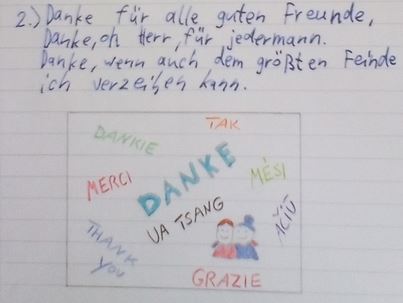 2.) Danke für alle guten Freunde,
Danke, oh Herr, für jedermann.
Danke, wenn auch dem größten Feinde
ich verzeihen kann.
TAK
DANKIE
DANKE
MÉSI
MERCI
UA TSANG
AČIŪ
THANK
YOU
GRAZIE